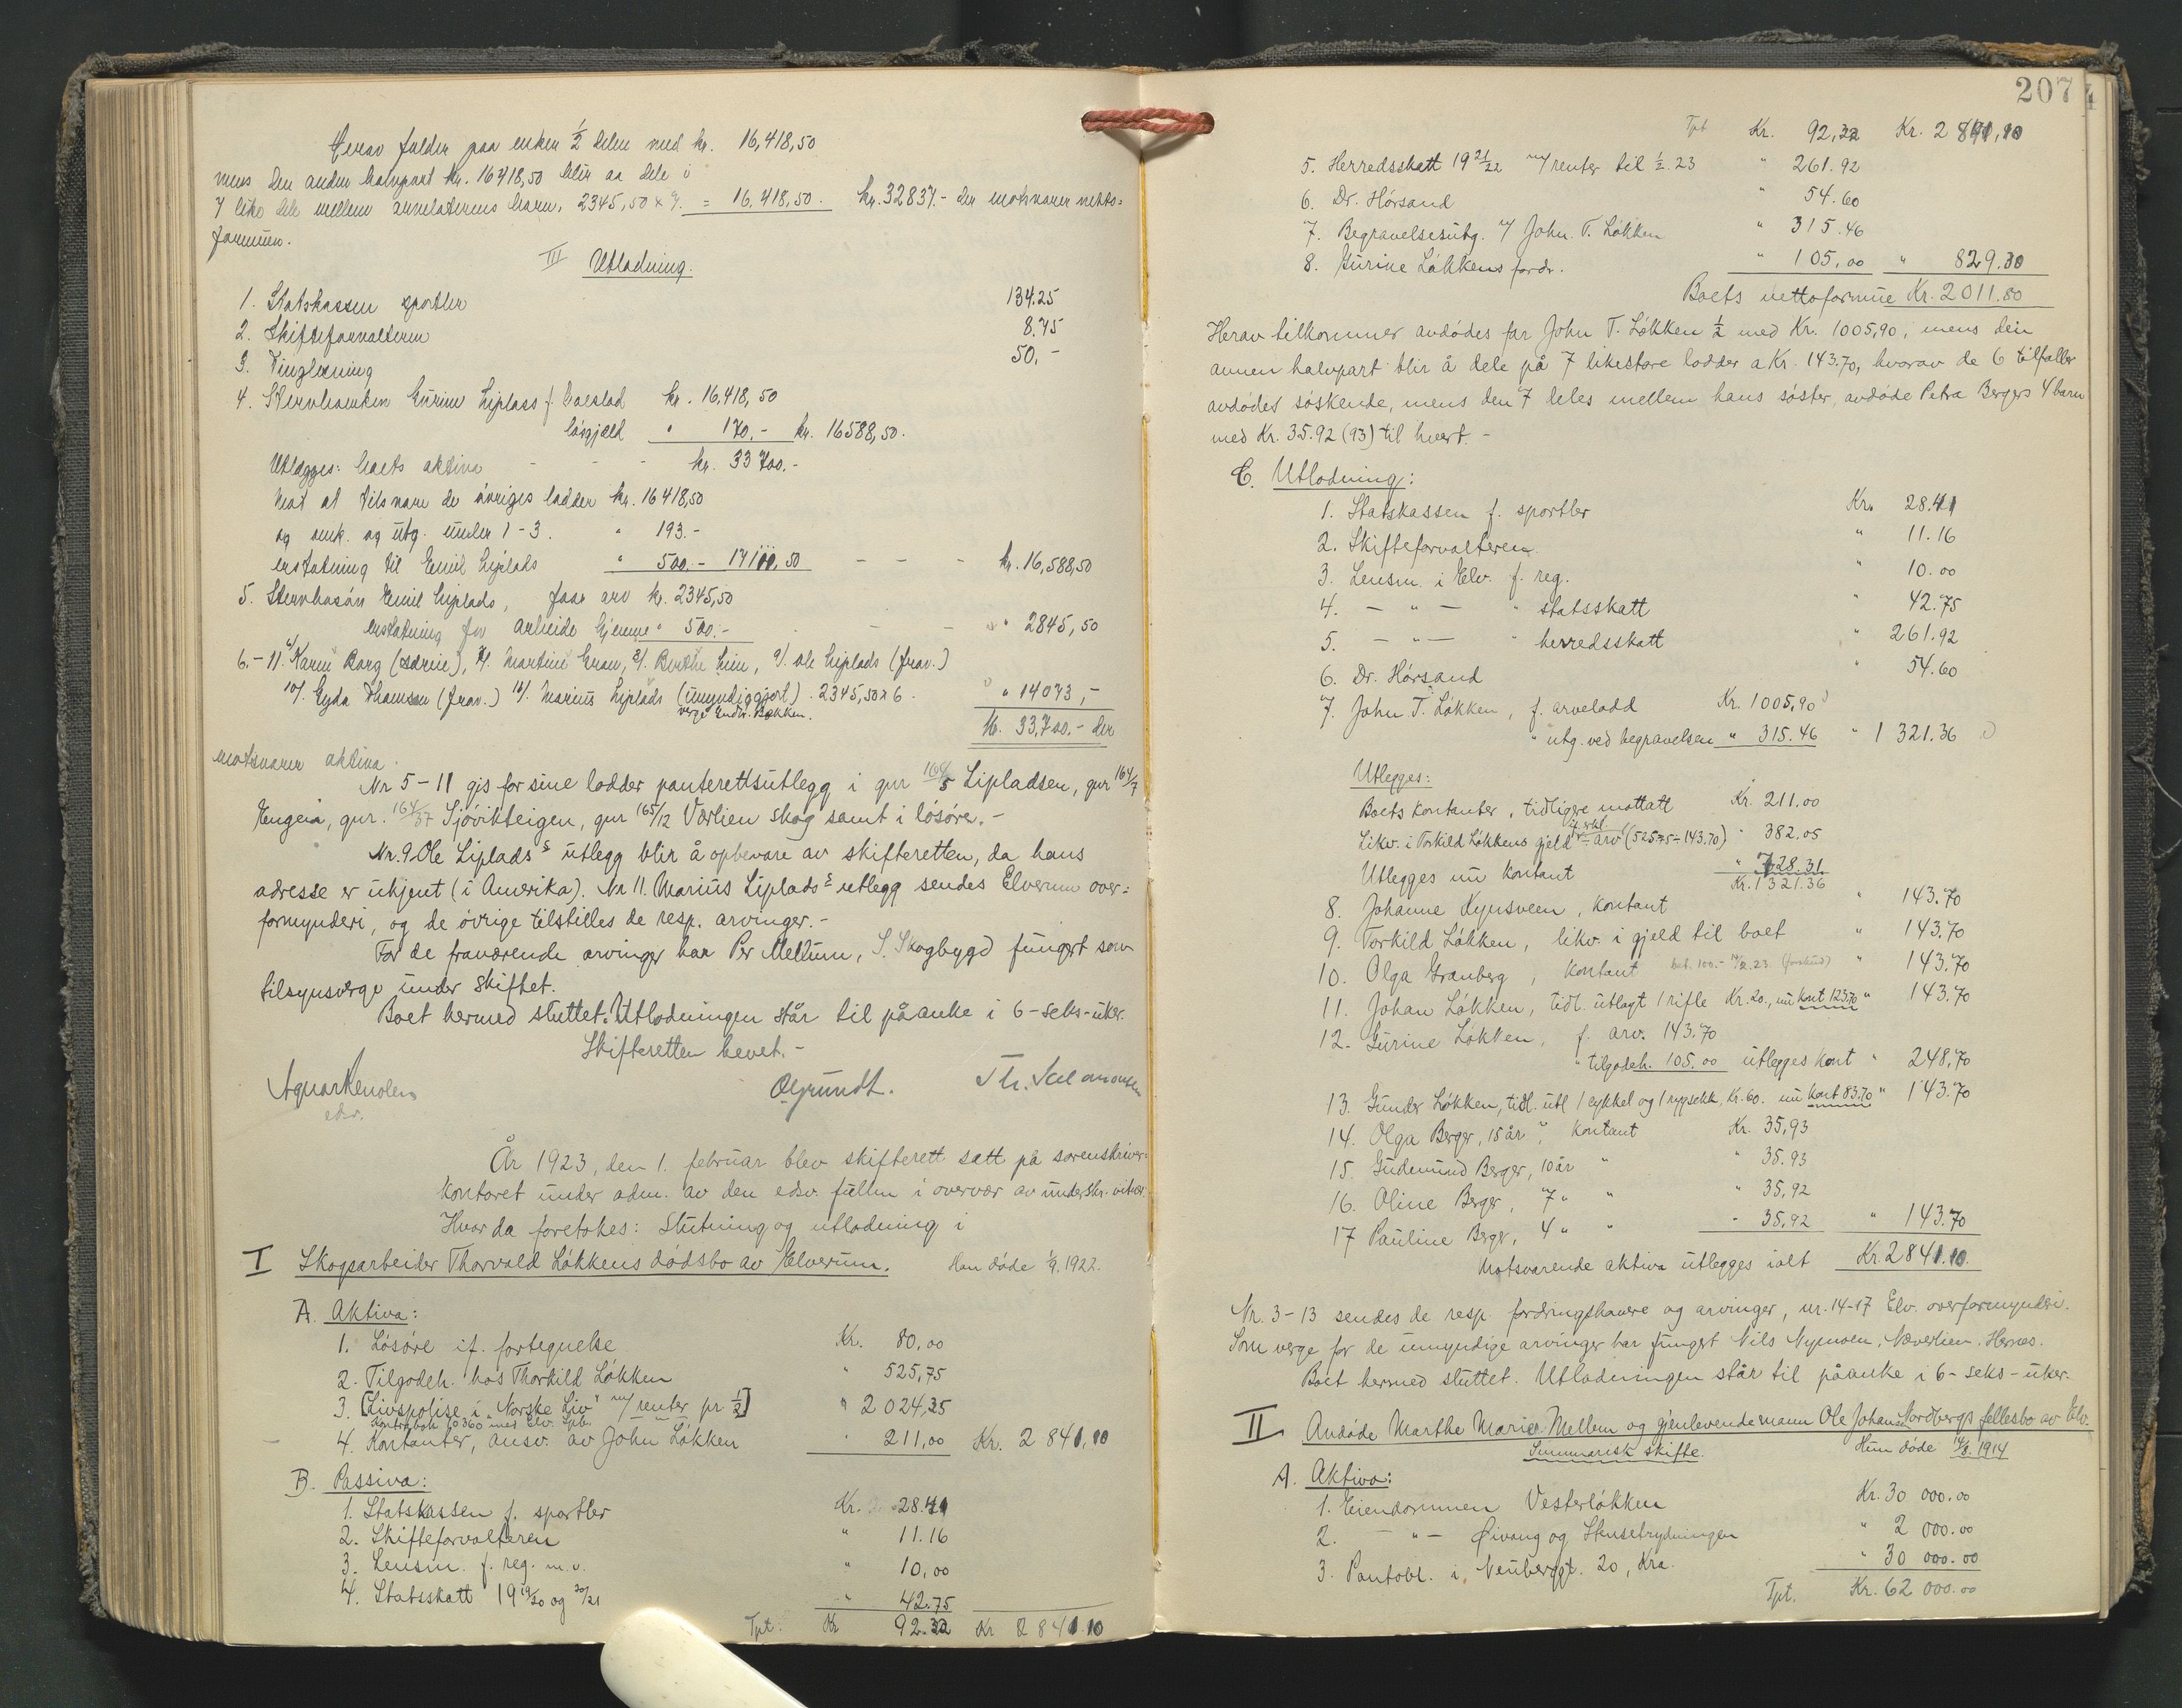 Herav falder paa enken 1/2 delen med kr. 16,418,50
mens den anden halvpart kr. 16418,50 blir aa dele i
7 like dele mellem arvelaterens barn, 2345,50 x 7. = 16,418,50. kr. 32837.- der motsvarer netto=
formuen.
III Utlodning.
1. Statskassen sportler 134.25
2. Skifteforvalteren 8.75
3. Tinglæsning 50.-
4. Stervboenken Gurine Liplass f. boeslod kr. 16,418,50
løsgjæld " 170.- kr. 16588,50.
Utlægges: boets aktiva - - - kr. 33 700.-
mot at tilsvare de øvriges lodder kr. 16418,50
og omk. og utg. under 1-3. " 193.-
erstatning til Emil Liplads " 500.- 17111,50 - - - kr. 16,588,50
5. Stervbosøn Emil Liplads, faar arv kr. 2345,50
erstatning for arbeide hjemme " 500.- - - " 2845,50
6.-11. 6/ Karen Borg (særeie), 7/. Martine Gran, 8/. Berthe Lien, 9/. Ole Liplads (frav.)
10/. Gyda Thomsen (frav.) 11/. Marius Liplads (umyndiggjort). 2345,50 x 6. " 14073,-
verge Endr. Bakken.
kr. 33,700.- der
motsvarer aktiva.
Nr 5-11 gis for sine lodder panterettsutlegg i gnr 164/5 Lipladsen, gnr 164/7
Engen, gnr. 164/37 Sjøvikteigen, gnr 165/12 Værlien skog samt i løsøre.-
Nr. 9. Ole Liplads's utlegg blir å opbevare av skifteretten, da hans
adresse er ukjent (i Amerika). Nr 11. Marius Liplads's utlegg sendes Elverum over=
formynderi, og de øvrige tilstilles de resp. arvinger.-
For de fraværende arvinger har Per Mellum, S. Skogbygd fungert som
tilsynsverge under skiftet.
Boet hermed sluttet. Utlodningen står til påanke i 6-seks-uker.
Skifteretten hevet.-
edsv. OGrundt. Th. Salomonsen
År 1923, den 1. februar blev skifterett satt på sorenskriver-
kontoret under adm. av den edsv. fullm i overvær av underskr. vitner.
Hvor da foretokes: Slutning og utlodning i
I Skogsarbeider Thorvald Løkkens dødsbo av Elverum. Han døde 1/9. 1922.
A. Aktiva:
1. Løsøre if. fortegnelse Kr. 80,00
2. Tilgodeh. hos Thorkild Løkken " 525,75
3. [Livspolise i "Norske Liv" m/ renter pr 1/2] " 2 024,35
Kontrabok 10360 med Elv. Spb.
4. Kontanter, ansv. av John Løkken " 211,00 Kr. 2 841,10
B. Passiva:
1. Statskassen f. sportler Kr. 28.41
2. Skifteforvalteren " 11.16
3. Lensm. f. reg. m.v. " 10,00
4. Statsskatt 19 19/20 og 20/21 " 42.75
Tpt. Kr 92.32 Kr 2 841.10
207
Tpt Kr. 92,32 Kr. 2 841,10
5. Herredsskatt 19 21/22 m/ renter til 1/2.23 " 261.92
6. Dr. Hørsand " 54.60
7. Begravelsesutg. v/ John. T. Løkken " 315.46
8. Gurine Løkkens fordr. " 105.00 " 829.30
Boets nettoformue Kr. 2 011.80
Herav tilkommer avdødes far John T. Løkken 1/2 med Kr. 1005,90, mens den
annen halvpart blir å dele på 7 likestore lodder a Kr. 143.70, hvorav de 6 tilfaller
avdødes søskende, mens den 7 deles mellem hans søster, avdøde Petra Bergers 4 barn
med Kr. 35.92 (93) til hvert.-
C. Utlodning:
1. Statskassen f. sportler Kr. 28.41
2. Skifteforvalteren " 11.16
3. Lensm. i Elv. f. reg. " 10.00
4. - " - " statsskatt " 42.75
5. - " - " herredsskatt " 261.92
6. Dr. Hørsand " 54.60
7. John T. Løkken, f. arvelodd Kr. 1005,90
" utg. ved begravelsen " 315.46 " 1 321.36
Utlegges:
Boets kontanter, tidligere mottatt Kr. 211.00
Likv. i Torkild Løkkens gjeld ÷ arv (525.75 ÷ 143.70) " 382.05
Utlegges nu kontant " 728.31
Kr. 1 321.36
8. Johanne Kynsveen, kontant " 143.70
9. Torkild Løkken, likv. i gjeld til boet " 143.70
10. Olga Granberg, kontant bet. 100.- 14/2.23. (forskud) " 143.70
11. Johan Løkken, tidl. utlagt 1 rifle Kr. 20., nu kont 123.70 " 143.70
12. Gurine Løkken, f. arv. 143.70
" tilgodeh. 105.00 utlegges kont " 248,70
13. Gunder Løkken, tidl. utl 1 sykkel og 1 rypsekk, Kr. 60. nu kont 83.70 " 143.70
14. Olga Berger, 15 år, kontant Kr. 35,93
15. Gudmund Berger, 10 år " " 35.93
16. Oline Berger, 7 " " " 35,92
17 Pauline Berger, 4 " " " 35,92 " 143.70
Motsvarende aktiva utlegges ialt Kr. 2841.10.
Nr. 3-13 sendes de resp. fordringshavere og arvinger, nr. 14-17 Elv. overformynderi.
Som verge for de umyndige arvinger har fungert Nils Nymoen, Næverlien. Hernes.
Boet hermed sluttet. Utlodningen står til påanke i 6-seks-uker.
II Avdøde Marthe Marie Mellem og gjenlevende mann Ole Johan Nordbergs fellesbo av Elv.
Summarisk skifte. Hun døde 14/8. 1914
A. Aktiva:
1. Eiendommen Vesterløkken Kr. 30 000.00
2. - " - Øivang og Stensetrydningen " 2 000.00
3. Pantobl. i Neuberggt. 20, Kra. " 30 000.00
Tpt. Kr. 62 000.00